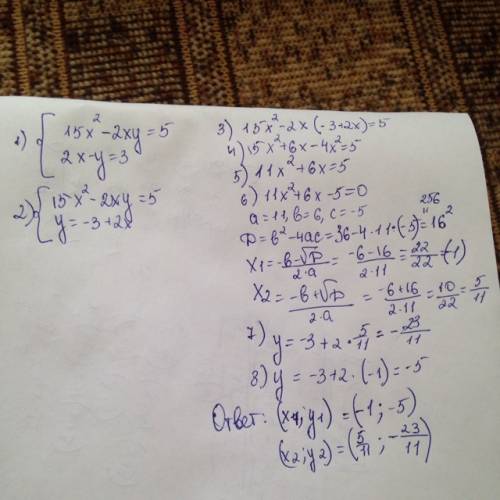 1) { 15x² - 2xy = 5
2x - y = 3
2) { 15x² - 2xy = 5
y = -3 + 2x
3) 15x² - 2x(-3+2x) = 5
4) 15x² + 6x - 4x² = 5
5) 11x² + 6x = 5
6) 11x² + 6x - 5 = 0
a = 11, b = 6, c = -5
256
"
D = b² - 4ac = 36 - 4 · 11 · (-5) = 16²
x1 = -b - √D / 2·a = -6 - 16 / 2·11 = 22/22 = (-1)
x2 = -b + √D / 2·a = -6 + 16 / 2·11 = 10/22 = 5/11
7) y = -3 + 2 · 5/11 = - 23/11
8) y = -3 + 2 · (-1) = -5
Ответ: (x1; y1) = (-1; -5)
(x2; y2) = (5/11; - 23/11)